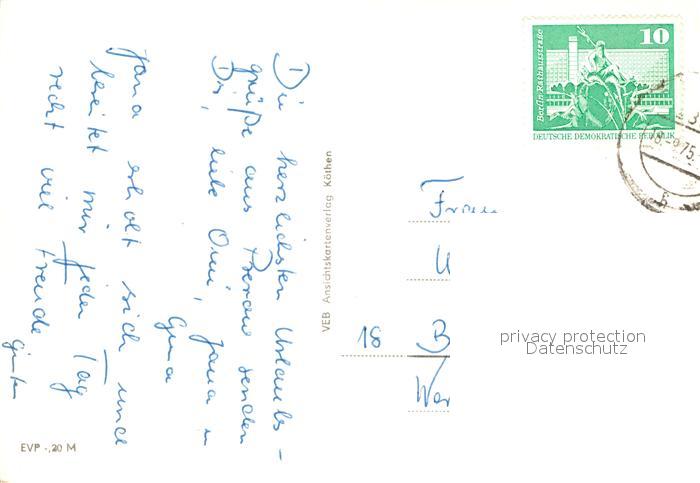 Die herzlichsten Urlaubs-
grüße aus Prerow senden
Dir, liebe Omi, Jana u
Gina
Jana erholt sich und
bereitet mir jeden Tag
recht viel Freude
VEB Ansichtskartenverlag Köthen
EVP -,20 M
Berlin Rathausstraße
10
DEUTSCHE DEMOKRATISCHE REPUBLIK
75
Frau
U
18 B
privacy protection
Datenschutz